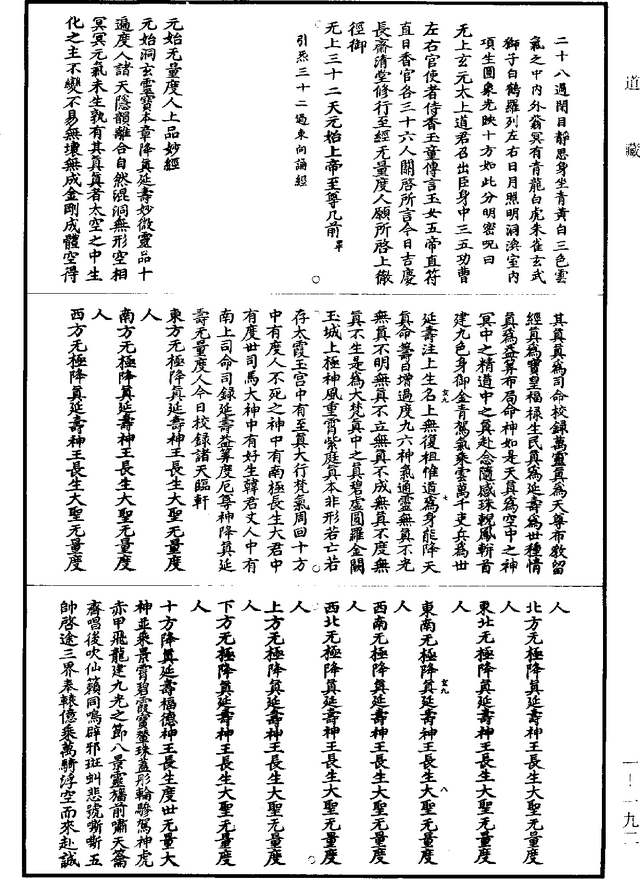 道藏
二十八過閉目靜思身坐青黃白三色雲
氣之中內外蓊冥有青龍白虎朱雀玄武
獅子白鶴羅列左右日月照明洞渙室內
項生圓象光映十方如此分明密呪曰
无上玄元太上道君召出臣身中三五功曹
左右官使者侍香玉童傳言玉女五帝直符
直日香官各三十六人關啓所言今日吉慶
長齋清堂修行至經无量度人願所啓上徹
徑御
无上三十二天元始上帝至尊几前畢
引炁三十二過東向誦經
元始无量度人上品妙經
元始洞玄靈寶本章降真延壽妙微靈品十
遍度人諸天隱韻離合自然混洞無形空相
冥冥元氣未生孰有其真真者太空之中生
化之主不變不易無壞無成金剛成體空得
其真真為司命校錄萬靈真為天尊布教留
經真為寶皇福祿生民真為延壽為世種情
真為益筭布局命神如是天真為空中之神
冥中之精道中之真赴念隨感珠輗鳳輧首
建九色身御金青駕氣乘雲萬千吏兵為世
延壽注上生名上無復祖惟道為身能降天
真命籌日增過度九六神氣通靈無真不光
無真不明無真不立無真不成無真不度無
真不生是為大梵真中之真碧虛圓羅金闕
玉城上極神風重霄紫庭真本非形若亡若
存太霞玉宮中有至真大行梵氣周回十方
中有度人不死之神中有南極長生大君中
有度世司馬大神中有好生韓君丈人中有
南上司命司錄延壽益筭度厄尊神降真延
壽无量度人今日校錄諸天臨軒
東方无極降真延壽神王長生大聖无量度
人
南方无極降真延壽神王長生大聖无量度
人
西方无極降真延壽神王長生大聖无量度
人
北方无極降真延壽神王長生大聖无量度
人
東北无極降真延壽神王長生大聖无量度
人
東南无極降真延壽神王長生大聖无量度
人
西南无極降真延壽神王長生大聖无量度
人
西北无極降真延壽神王長生大聖无量度
人
上方无極降真延壽神王長生大聖无量度
人
下方无極降真延壽神王長生大聖无量度
人
十方降真延壽福德神王長生度世无量大
神並乘景霄碧霞寶蓥珠蓋彤輪驂駕神虎
赤甲飛龍建九光之節八景靈旛前嘯天籥
齊唱後吹仙籟同鳴辟邪斑虯悲號嘶嘶五
帥啓途三界奉轅億乘萬騎浮空而來赴誠
一—一九二